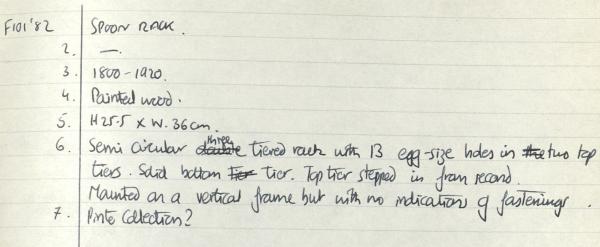 F101'82 SPOON RACK.
2. —
3. 1800-1920.
4. Painted wood.
5. H25.5 x W.36cm.
6. Semi circular double three tiered rack with 13 egg-size holes in the two top
tiers. Solid bottom tier tier. Top tier stepped in from second.
Mounted on a vertical frame but with no indication of fastenings.
7. Pinto Collection?